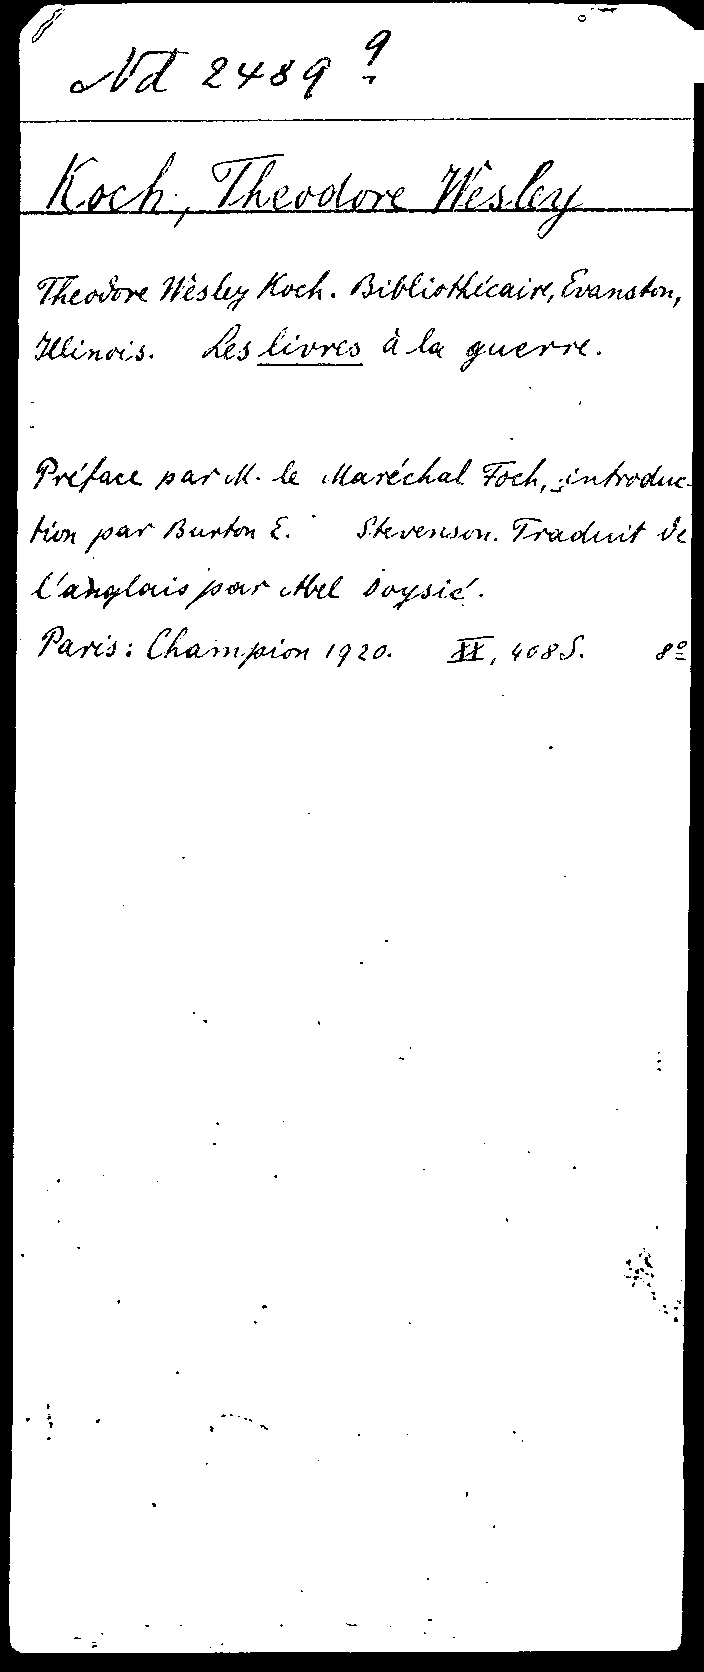 Nd 2489 9
Koch, Theodore Wesley
Theodore Wesley Koch. Bibliothécaire, Evanston,
Illinois. Les livres à la guerre.
Préface par M. le Maréchal Foch, introduc-
tion par Burton E. Stevenson. Traduit de
l'anglais par Abel Doysié.
Paris: Champion 1920. XX, 408 S. 8º